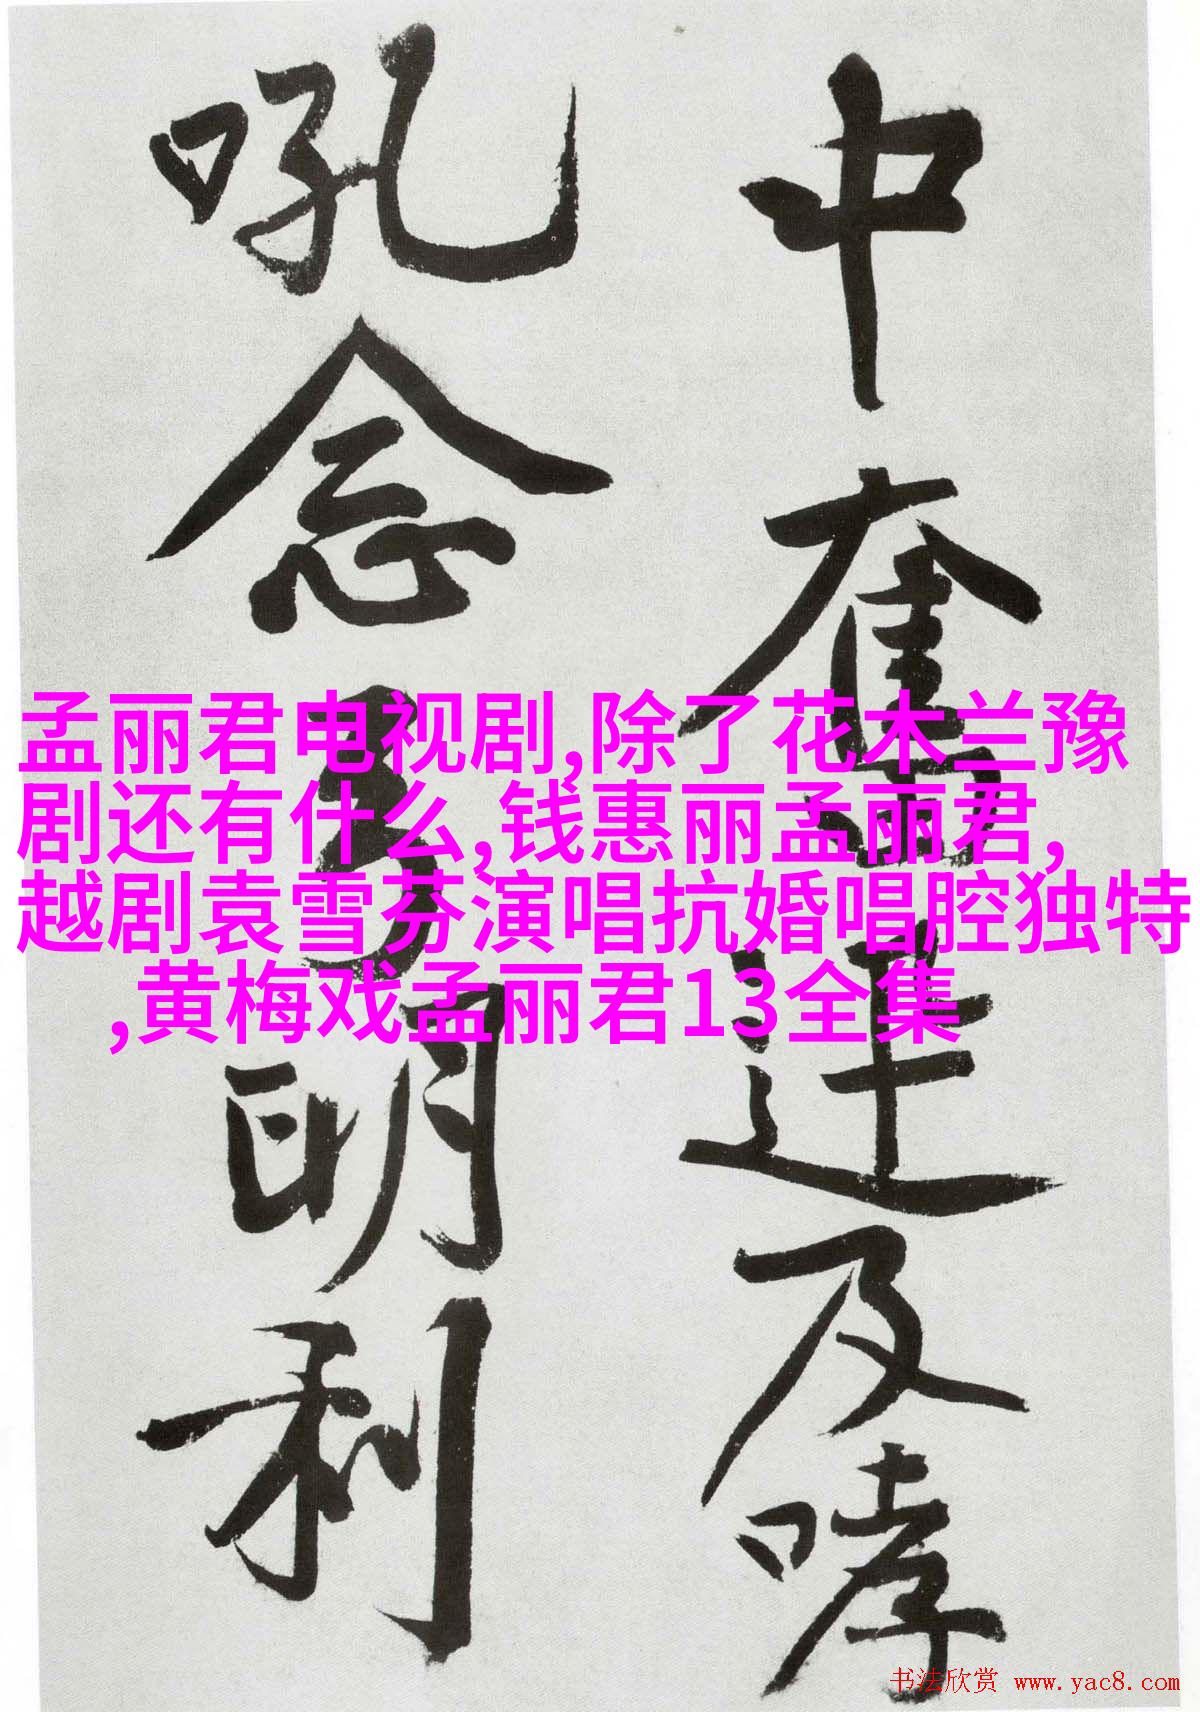 中奮及哮
吼念明利
孟丽君电视剧,除了花木兰豫
剧还有什么,钱惠丽孟丽君,
越剧袁雪芬演唱抗婚唱腔独特
,黄梅戏孟丽君13全集
书法欣赏 www.yac8.com